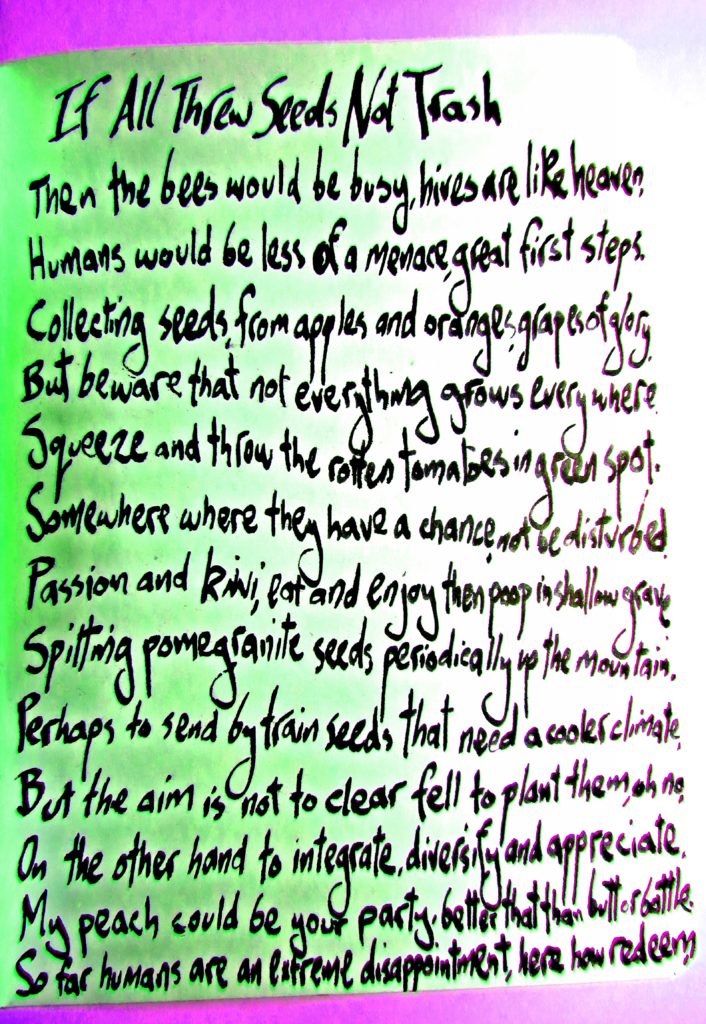 If All Threw Seeds Not Trash
Then the bees would be busy, hives are like heaven.
Humans would be less of a menace, great first steps.
Collecting seeds, from apples and oranges, grapes of glory.
But beware that not everything grows everywhere.
Squeeze and throw the rotten tomatoes in green spot.
Somewhere where they have a chance, not be disturbed.
Passion and kiwi, eat and enjoy then poop in shallow grave.
Spitting pomegranite seeds periodically up the mountain.
Perhaps to send by train seeds that need a cooler climate.
But the aim is not to clear fell to plant them, oh no.
On the other hand to integrate, diversify and appreciate.
My peach could be your party, better that than butt or bottle.
So far humans are an extreme disappointment, here how redeem.